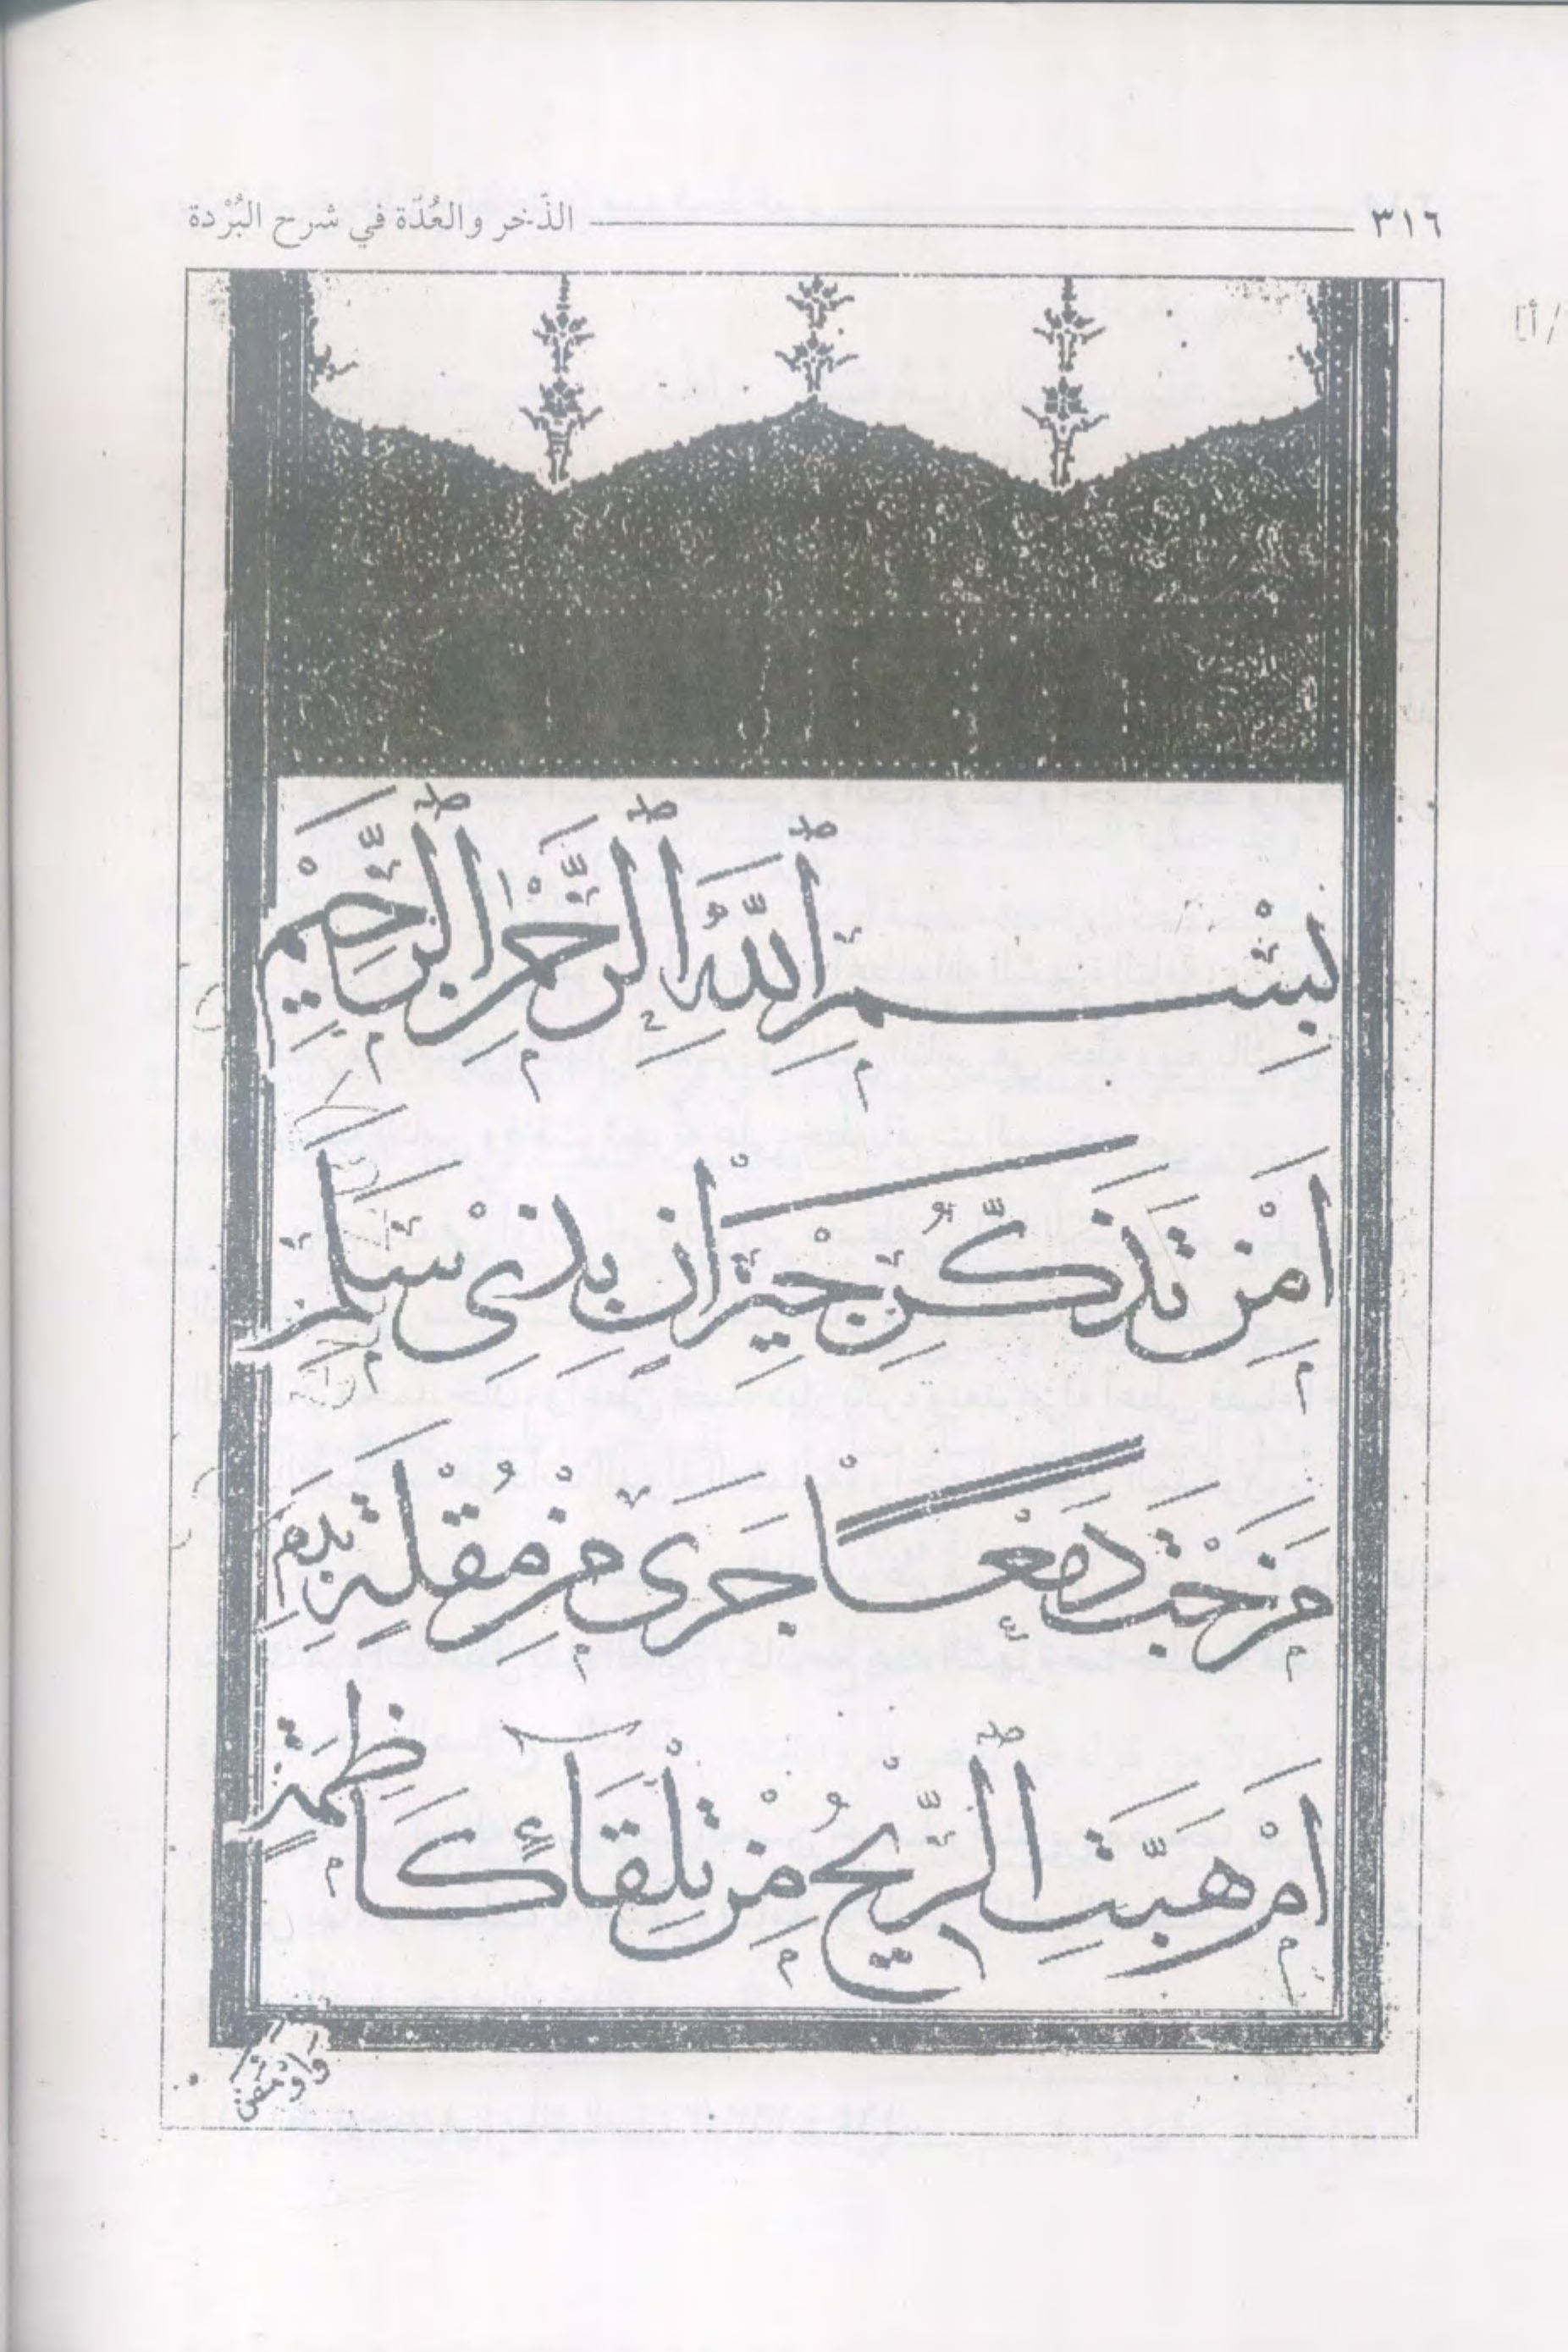 ٣١٦ الذّخر والعُدّة في شرح البُرْدة
بِسْمِ ٱللَّهِ ٱلرَّحْمٰنِ ٱلرَّحِيْمِ
اَمِنْ تَذَكُّرِ جِيْرَانٍ بِذِيْ سَلَمٍ
مَزَجْتَ دَمْعًا جَرَىٰ مِنْ مُقْلَةٍ بِدَمِ
اَمْ هَبَّتِ ٱلرِّيْحُ مِنْ تِلْقَآءِ كَاظِمَةٍ
وَاَوْمَضَ